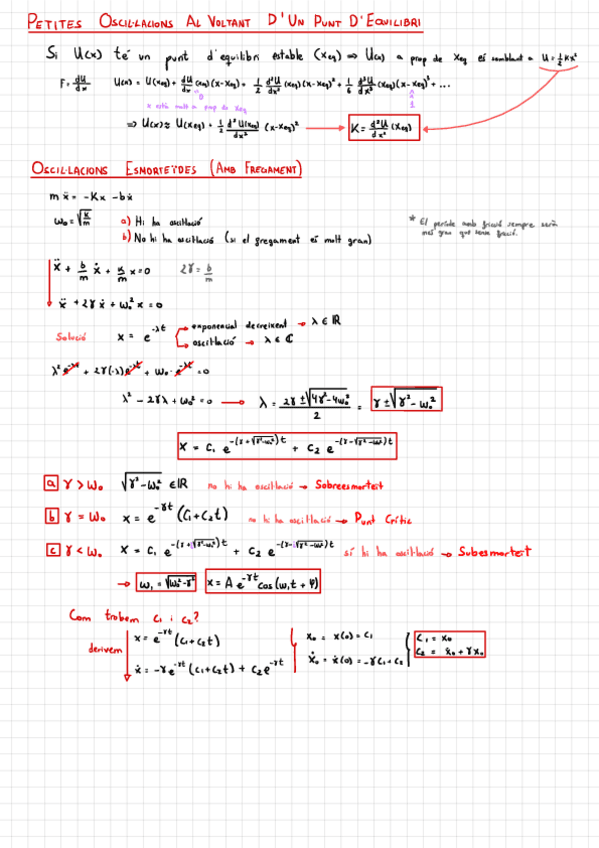 PETITES OSCIL·LACIONS AL VOLTANT D'UN PUNT D'EQUILIBRI
Si U(x) té un punt d'equilibri estable (x_eq) ⇒ U(x) a prop de x_eq és semblant a U = ½Kx²
F = dU/dx U(x) = U(x_eq) + dU/dx (x_eq)(x-x_eq) + 1/2 d²U/dx² (x_eq)(x-x_eq)² + 1/6 d³U/dx³ (x_eq)(x-x_eq)³ + ...
0
x està molt a prop de x_eq
1
⇒ U(x) ≈ U(x_eq) + 1/2 d²U(x_eq)/dx² (x-x_eq)² → K = d²U/dx² (x_eq)
OSCIL·LACIONS ESMORTEÏDES (AMB FREGAMENT)
mẍ = -Kx - bẋ
ω₀ = √(K/m) a) Hi ha oscil·lació
b) No hi ha oscil·lació (si el gregament és molt gran)
* El període amb fricció sempre serà
més gran que sense fricció.
ẍ + b/m ẋ + K/m x = 0 2γ = b/m
ẍ + 2γẋ + ω₀²x = 0
Solució x = e^(-λt) exponencial decreixent → λ ∈ ℝ
oscil·lació → λ ∈ ℂ
λ² e^(-λt) + 2γ(-λ)e^(-λt) + ω₀² e^(-λt) = 0
λ² - 2γλ + ω₀² = 0 → λ = (2γ ± √(4γ² - 4ω₀²))/2 = γ ± √(γ² - ω₀²)
x = C₁ e^(-(γ+√(γ²-ω₀²))t) + C₂ e^(-(γ-√(γ²-ω₀²))t)
a γ > ω₀ √(γ²-ω₀²) ∈ ℝ no hi ha oscil·lació → Sobreesmorteït
b γ = ω₀ x = e^(-γt) (C₁+C₂t) no hi ha oscil·lació → Punt Crític
c γ < ω₀ x = C₁ e^(-(γ+√(γ²-ω₀²))t) + C₂ e^(-(γ-√(γ²-ω₀²))t) sí hi ha oscil·lació → Subesmorteït
→ ω₁ = √(ω₀²-γ²) x = A e^(-γt) cos(ω₁t + φ)
Com trobem C₁ i C₂?
derivem x = e^(-γt) (C₁+C₂t) x₀ = x(0) = C₁ C₁ = x₀
ẋ = -γe^(-γt) (C₁+C₂t) + C₂e^(-γt) ẋ₀ = ẋ(0) = -γC₁+C₂ C₂ = ẋ₀ + γx₀